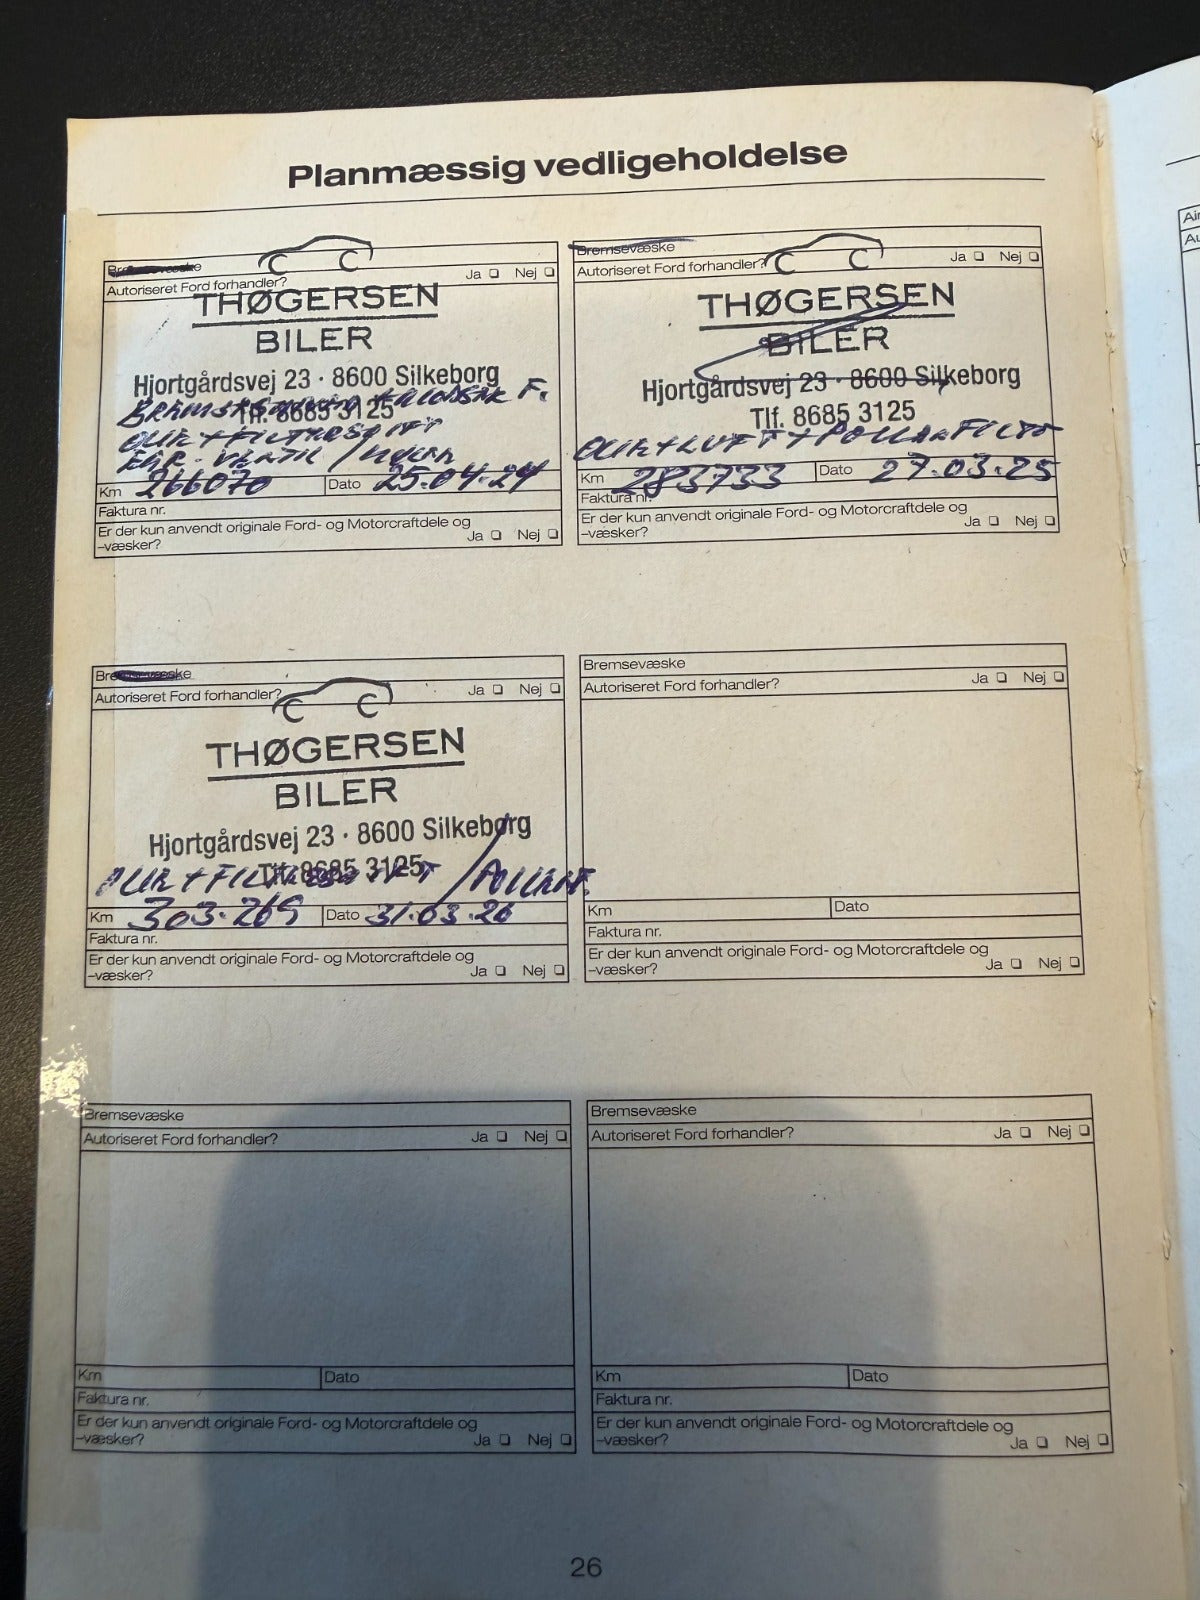 Planmæssig vedligeholdelse
Bremsevæske
Autoriseret Ford forhandler? Ja Nej
THØGERSEN
BILER
Hjortgårdsvej 23 · 8600 Silkeborg
Tlf. 8685 3125
OLIE + FILTERSKIFT
Km 266070 Dato 25.04.24
Faktura nr.
Er der kun anvendt originale Ford- og Motorcraftdele og
-væsker? Ja Nej
Bremsevæske
Autoriseret Ford forhandler? Ja Nej
THØGERSEN
BILER
Hjortgårdsvej 23 · 8600 Silkeborg
Tlf. 8685 3125
OLIE + LUFT + POLLENFILTER
Km 283733 Dato 27.03.25
Faktura nr.
Er der kun anvendt originale Ford- og Motorcraftdele og
-væsker? Ja Nej
Bremsevæske
Autoriseret Ford forhandler? Ja Nej
THØGERSEN
BILER
Hjortgårdsvej 23 · 8600 Silkeborg
Tlf. 8685 3125
OLIE + FILTERSKIFT / POLLENF.
Km 303.269 Dato 31.03.26
Faktura nr.
Er der kun anvendt originale Ford- og Motorcraftdele og
-væsker? Ja Nej
Bremsevæske
Autoriseret Ford forhandler? Ja Nej
Km Dato
Faktura nr.
Er der kun anvendt originale Ford- og Motorcraftdele og
-væsker? Ja Nej
Bremsevæske
Autoriseret Ford forhandler? Ja Nej
Km Dato
Faktura nr.
Er der kun anvendt originale Ford- og Motorcraftdele og
-væsker? Ja Nej
Bremsevæske
Autoriseret Ford forhandler? Ja Nej
Km Dato
Faktura nr.
Er der kun anvendt originale Ford- og Motorcraftdele og
-væsker? Ja Nej
26